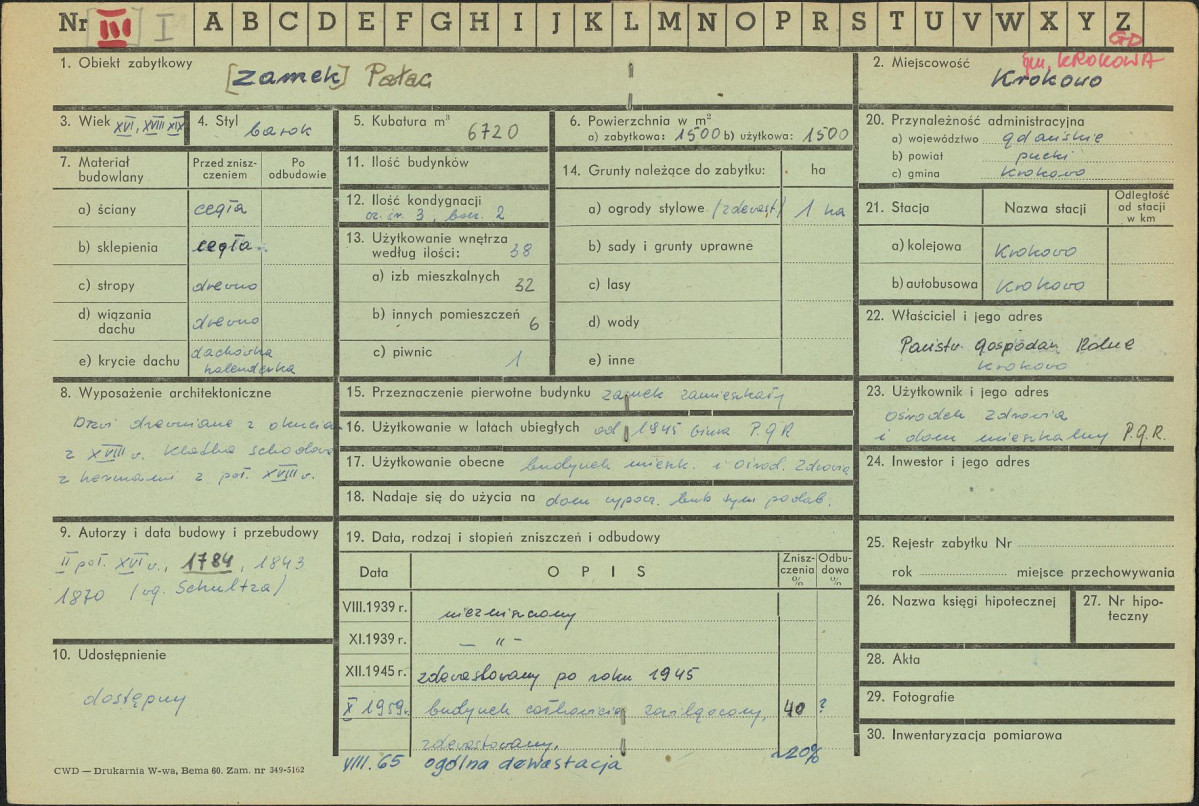 Nr III I A B C D E F G H I J K L M N O P R S T U V W X Y Z
GD
1. Obiekt zabytkowy
[zamek] Pałac
2. Miejscowość
gm. KROKOWA
Krokowo
3. Wiek XVI, XVIII XIX
4. Styl barok
5. Kubatura m³ 6720
6. Powierzchnia w m²
a) zabytkowa: 1500 b) użytkowa: 1500
20. Przynależność administracyjna
a) województwo gdańskie
b) powiat pucki
c) gmina Krokowo
7. Materiał budowlany
Przed zniszczeniem
Po odbudowie
a) ściany cegła
b) sklepienia cegła
c) stropy drewno
d) wiązania dachu drewno
e) krycie dachu dachówka
holenderka
11. Ilość budynków
12. Ilość kondygnacji
cz. śr. 3, bocz. 2
13. Użytkowanie wnętrza
według ilości: 38
a) izb mieszkalnych 32
b) innych pomieszczeń 6
c) piwnic 1
14. Grunty należące do zabytku: ha
a) ogrody stylowe (zdewast.) 1 ha
b) sady i grunty uprawne
c) lasy
d) wody
e) inne
21. Stacja
Nazwa stacji
Odległość od stacji w km
a) kolejowa Krokowo
b) autobusowa Krokowo
22. Właściciel i jego adres
Państw. Gospodar. Rolne
Krokowo
8. Wyposażenie architektoniczne
Drzwi drewniane z okucia
z XVIII w. Klatka schodowa
z hermami z poł. XVIII w.
15. Przeznaczenie pierwotne budynku zamek zamieszkały
16. Użytkowanie w latach ubiegłych od 1945 biura P.G.R
17. Użytkowanie obecne budynek mieszk. i ośrod. zdrowia
18. Nadaje się do użycia na dom wypocz. lub tym podob.
23. Użytkownik i jego adres
Ośrodek zdrowia
i dom mieszkalny P.G.R.
24. Inwestor i jego adres
9. Autorzy i data budowy i przebudowy
II poł. XVI w., 1784, 1843
1870 (wg. Schultza)
19. Data, rodzaj i stopień zniszczeń i odbudowy
Data
OPIS
Zniszczenia %
Odbudowa %
VIII.1939 r. niezniszczony
XI.1939 r. — " —
XII.1945 r. zdewastowany po roku 1945
X 1959 r. budynek całkowicie zawilgocony, 40 ?
zdewastowany.
VIII.65 ogólna dewastacja ~20%
25. Rejestr zabytku Nr
rok miejsce przechowywania
26. Nazwa księgi hipotecznej
27. Nr hipoteczny
10. Udostępnienie
dostępny
28. Akta
29. Fotografie
30. Inwentaryzacja pomiarowa
CWD — Drukarnia W-wa, Bema 60. Zam. nr 349-5162